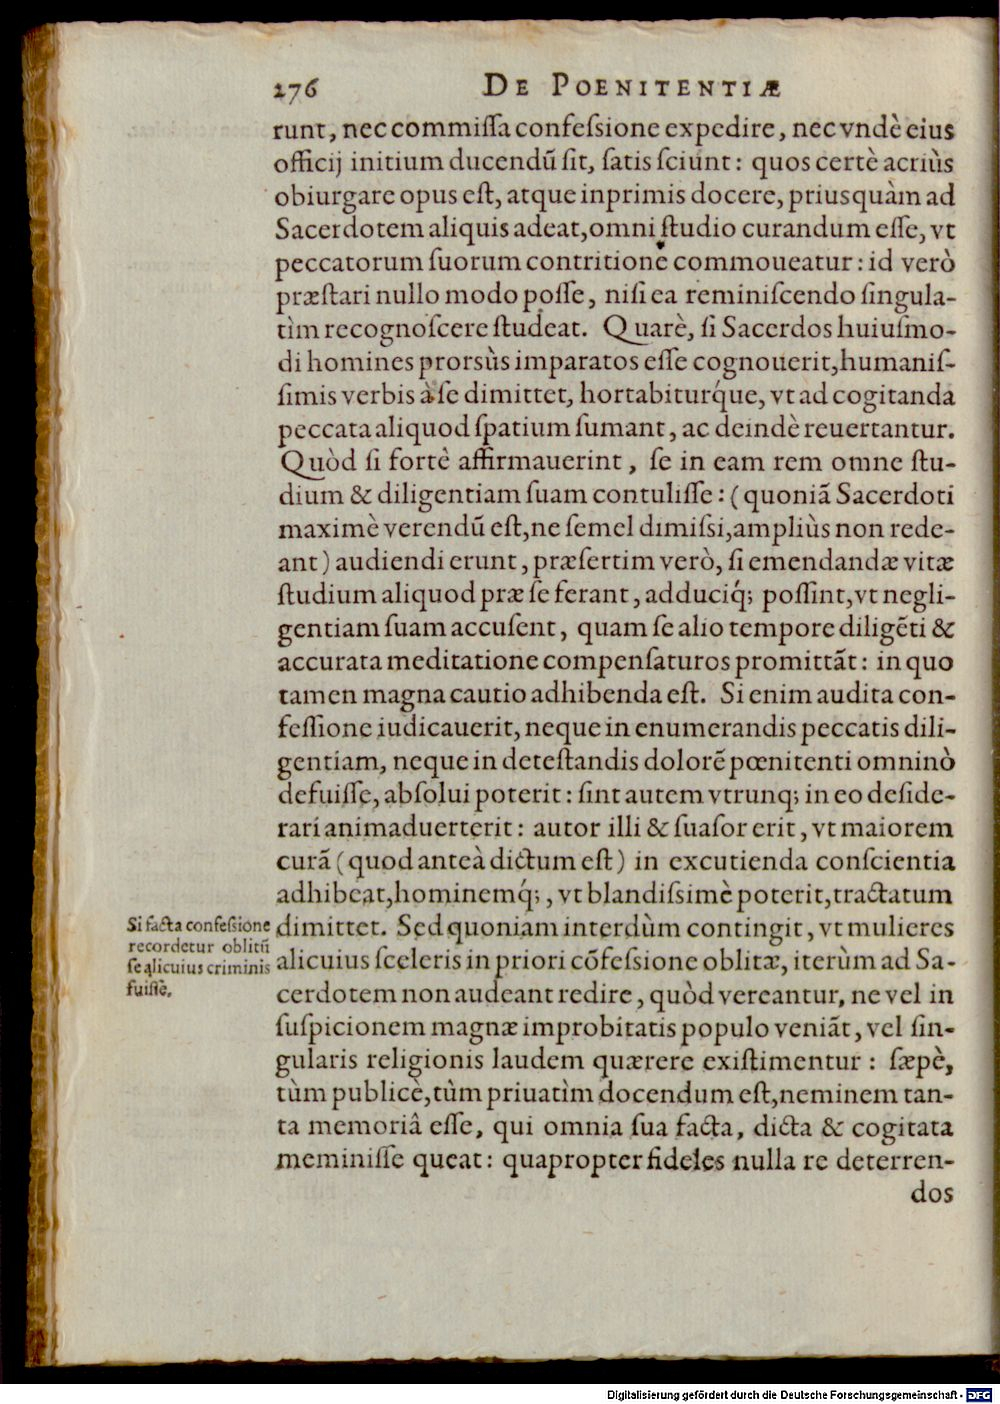 276 DE POENITENTIÆ
runt, nec commiſſa confeſsione expedire, nec vndè eius
officij initium ducendū ſit, ſatis ſciunt: quos certè acriùs
obiurgare opus eſt, atque inprimis docere, priusquàm ad
Sacerdotem aliquis adeat, omni ſtudio curandum eſſe, vt
peccatorum ſuorum contritione commoueatur: id verò
præſtari nullo modo poſſe, niſi ea reminiſcendo ſingula-
tìm recognoſcere ſtudeat. Quarè, ſi Sacerdos huiuſmo-
di homines prorsùs imparatos eſſe cognouerit, humaniſ-
ſimis verbis à ſe dimittet, hortabiturq́ue, vt ad cogitanda
peccata aliquod ſpatium ſumant, ac deindè reuertantur.
Quòd ſi fortè affirmauerint, ſe in eam rem omne ſtu-
dium & diligentiam ſuam contuliſſe: (quoniā Sacerdoti
maximè verendū eſt, ne ſemel dimiſsi, ampliùs non rede-
ant) audiendi erunt, præſertim verò, ſi emendandæ vitæ
ſtudium aliquod præ ſe ferant, adduciq́; poſſint, vt negli-
gentiam ſuam accuſent, quam ſe alio tempore diligēti &
accurata meditatione compenſaturos promittāt: in quo
tamen magna cautio adhibenda eſt. Si enim audita con-
feſſione iudicauerit, neque in enumerandis peccatis dili-
gentiam, neque in deteſtandis dolorē pœnitenti omninò
defuiſſe, abſolui poterit: ſint autem vtrunq; in eo deſide-
rari animaduerterit: autor illi & ſuaſor erit, vt maiorem
curā (quod anteà dictum eſt) in excutienda conſcientia
adhibeat, hominemq́;, vt blandiſsimè poterit, tractatum
dimittet. Sed quoniam interdùm contingit, vt mulieres
alicuius ſceleris in priori cōfeſsione oblitæ, iterùm ad Sa-
cerdotem non audeant redire, quòd vereantur, ne vel in
ſuſpicionem magnæ improbitatis populo veniāt, vel ſin-
gularis religionis laudem quærere exiſtimentur: ſæpè,
tùm publicè, tùm priuatìm docendum eſt, neminem tan-
ta memoriâ eſſe, qui omnia ſua facta, dicta & cogitata
meminiſſe queat: quapropter fideles nulla re deterren-
dos
Si facta confeſsione
recordetur oblitū
ſe alicuius criminis
fuiſſe.
Digitalisierung gefördert durch die Deutsche Forschungsgemeinschaft - DFG